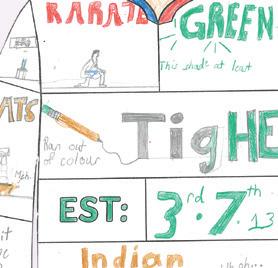 KARATE
GREEN
This shade at least
ATS
Ran out
of colour
TigHE
Meh.
EST:
3rd.7th.13
it
Indian